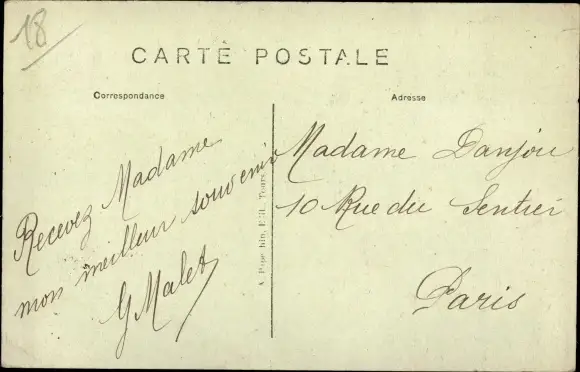 18
CARTE POSTALE
Correspondance
Adresse
Recevez Madame
mon meilleur souvenir
G Malet
Madame Danjou
10 Rue du Sentier
Paris
Édit. Tours